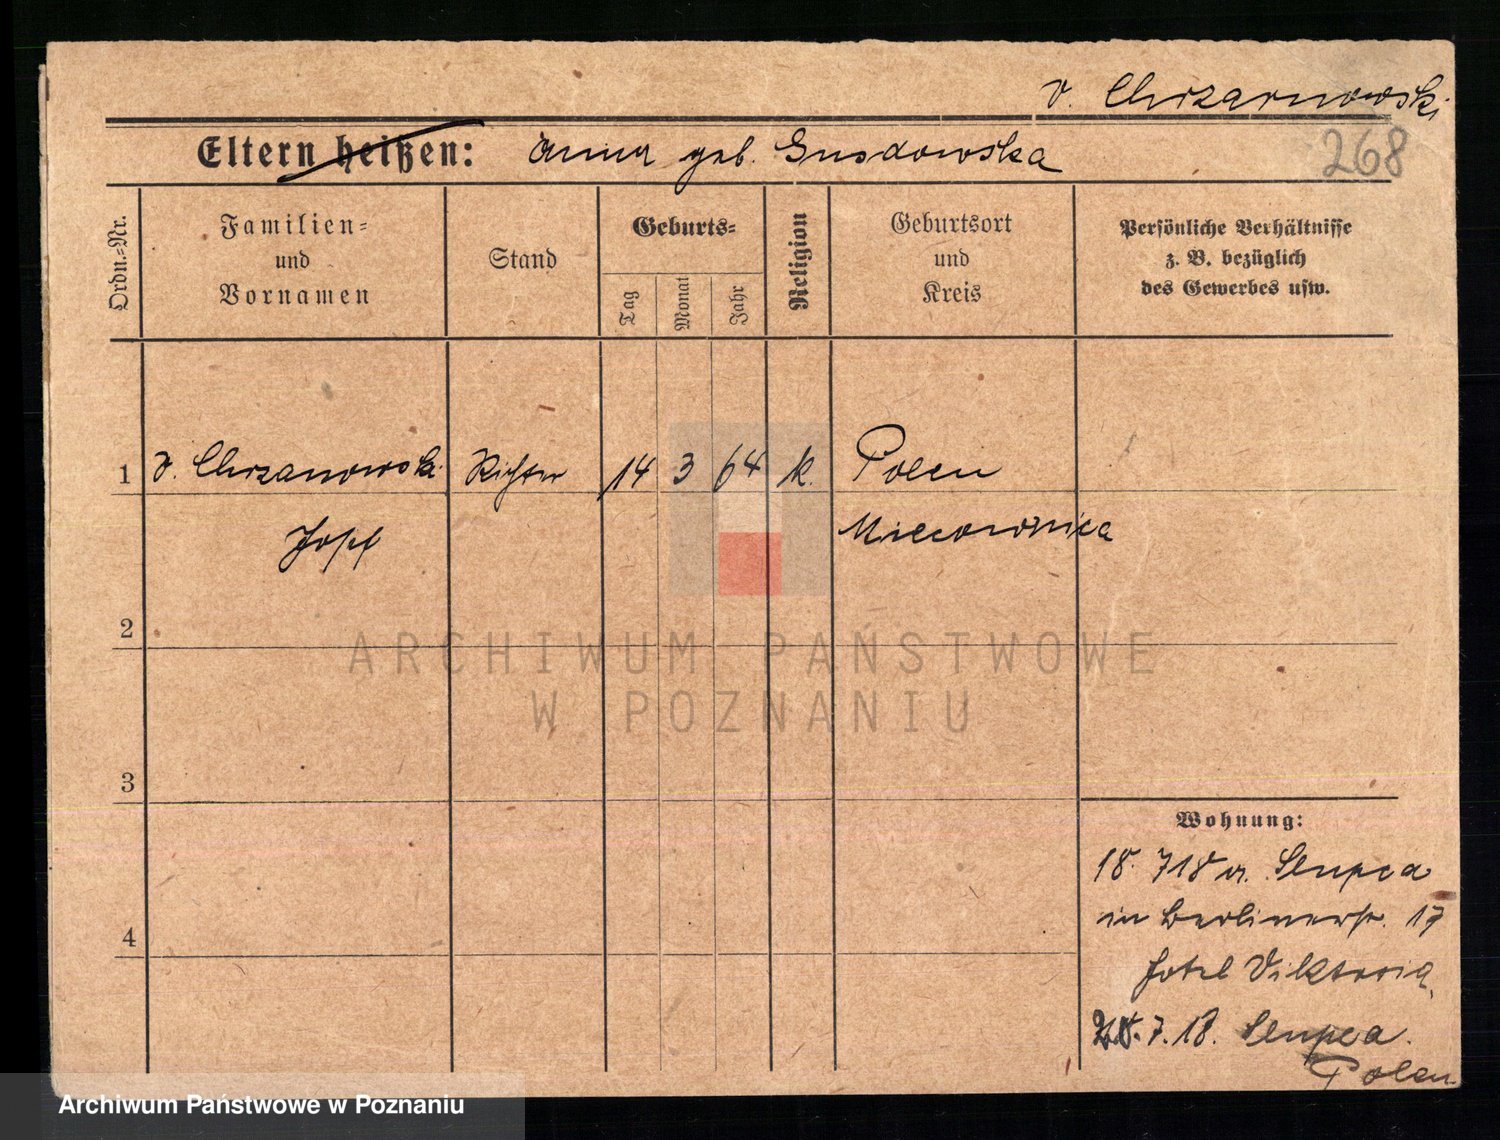 v. Chrzanowski
268
Eltern heißen: Anna geb. Gusdowska
Ordn.-Nr.
Familien-
und
Vornamen
Stand
Geburts-
Tag
Monat
Jahr
Religion
Geburtsort
und
Kreis
Persönliche Verhältnisse
z. B. bezüglich
des Gewerbes usw.
1 v. Chrzanowski Richter 14 3 64 k. Polen
Josef
2
3
4
Wohnung:
18. 7 18 v. Slupca
in Berlinerstr. 17
Hotel Viktoria
7. 18. Slupca.
Polen
ARCHIWUM PAŃSTWOWE
W POZNANIU
Archiwum Państwowe w Poznaniu